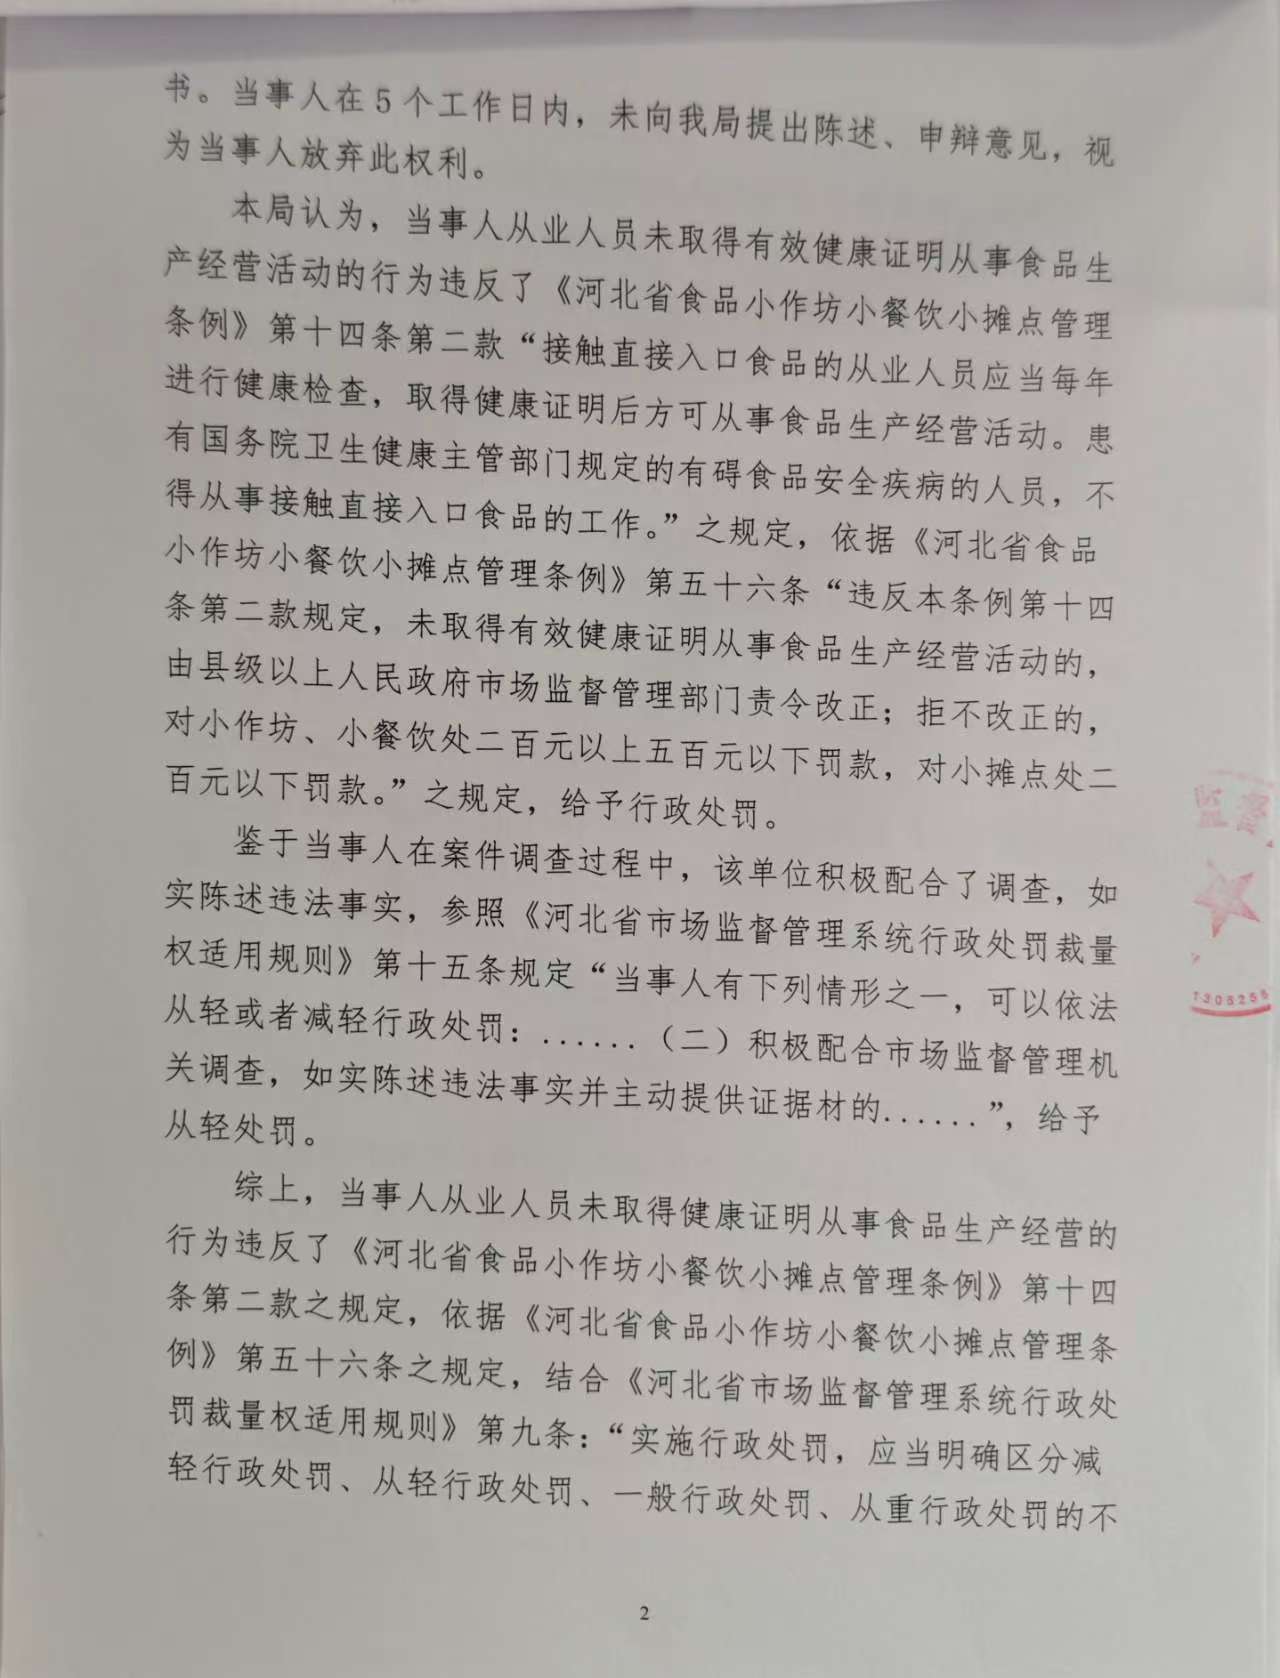 书。当事人在5个工作日内，未向我局提出陈述、申辩意见，视
为当事人放弃此权利。
本局认为，当事人从业人员未取得有效健康证明从事食品生
产经营活动的行为违反了《河北省食品小作坊小餐饮小摊点管理
条例》第十四条第二款“接触直接入口食品的从业人员应当每年
进行健康检查，取得健康证明后方可从事食品生产经营活动。患
有国务院卫生健康主管部门规定的有碍食品安全疾病的人员，不
得从事接触直接入口食品的工作。”之规定，依据《河北省食品
小作坊小餐饮小摊点管理条例》第五十六条“违反本条例第十四
条第二款规定，未取得有效健康证明从事食品生产经营活动的，
由县级以上人民政府市场监督管理部门责令改正；拒不改正的，
对小作坊、小餐饮处二百元以上五百元以下罚款，对小摊点处二
百元以下罚款。”之规定，给予行政处罚。
鉴于当事人在案件调查过程中，该单位积极配合了调查，如
实陈述违法事实，参照《河北省市场监督管理系统行政处罚裁量
权适用规则》第十五条规定“当事人有下列情形之一，可以依法
从轻或者减轻行政处罚：......（二）积极配合市场监督管理机
关调查，如实陈述违法事实并主动提供证据材的......”，给予
从轻处罚。
综上，当事人从业人员未取得健康证明从事食品生产经营的
行为违反了《河北省食品小作坊小餐饮小摊点管理条例》第十四
条第二款之规定，依据《河北省食品小作坊小餐饮小摊点管理条
例》第五十六条之规定，结合《河北省市场监督管理系统行政处
罚裁量权适用规则》第九条：“实施行政处罚，应当明确区分减
轻行政处罚、从轻行政处罚、一般行政处罚、从重行政处罚的不
2
监督